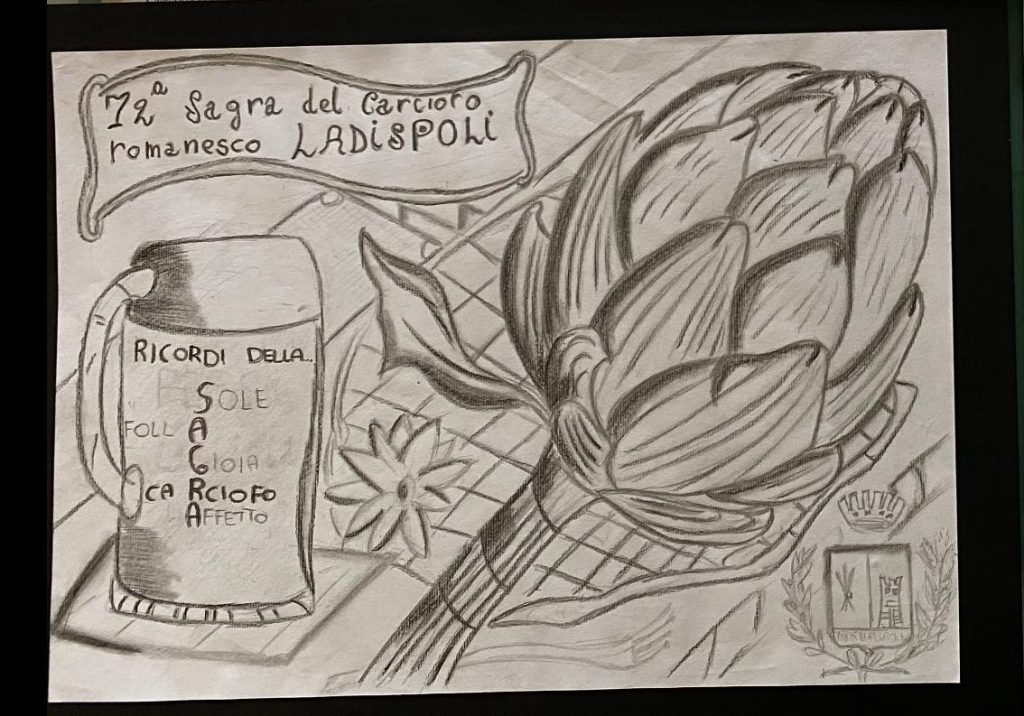 72ª Sagra del Carciofo
romanesco LADiSPOLi
RICORDI DELLA..
SOLE
FOLLA
GIOIA
CARCIOFO
AFFETTO